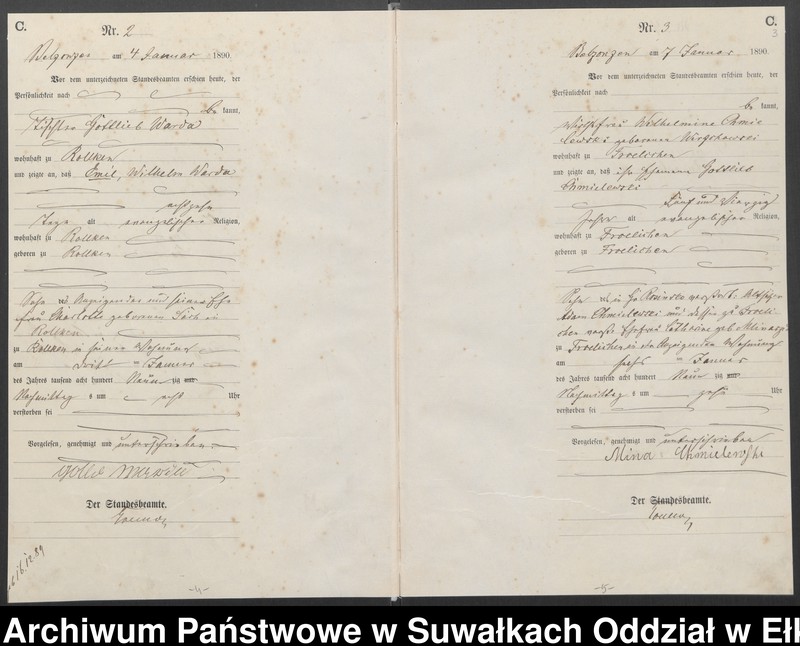 C.
Nr. 2
am 4 Januar 1890.
Vor dem unterzeichneten Standesbeamten erschien heute, der
Persönlichkeit nach
be kannt,
Gottlieb Warda
wohnhaft zu Rollken
und zeigte an, daß Emil, Wilhelm Warda
achtzehn
Tage alt evangelischer Religion,
wohnhaft zu Rollken
geboren zu Rollken
Sohn des Anzeigenden und seiner Ehe
frau Charlotte geborenen
Rollken
zu Rollken in seiner Wohnung
am dritten Januar
des Jahres tausend acht hundert Neun zig
Nachmittag s um acht Uhr
verstorben sei
Vorgelesen, genehmigt und unterschrieben
Der Standesbeamte.
16.12.89
-4-
C.
3
Nr. 3
am 7 Januar 1890
Vor dem unterzeichneten Standesbeamten erschien heute, der
Persönlichkeit nach
be kannt,
Wirthsfrau Wilhelmine Chmie
lewski geborenen
wohnhaft zu Froelichen
und zeigte an, daß ihr Ehemann Gottlieb
Chmielewski
Fünf und Vierzig
Jahre alt evangelischer Religion,
wohnhaft zu Froelichen
geboren zu Froelichen
Sohn des in
Adam Chmielewski und dessen zu Froeli
chen Ehefrau Catharine geb.
zu Froelichen in der Anzeigenden Wohnung
am sechs ten Januar
des Jahres tausend acht hundert Neun zig
Nachmittag s um Uhr
verstorben sei
Vorgelesen, genehmigt und unterschrieben
Mina Chmielewski
Der Standesbeamte.
-5-
Archiwum Państwowe w Suwałkach Oddział w Ełk